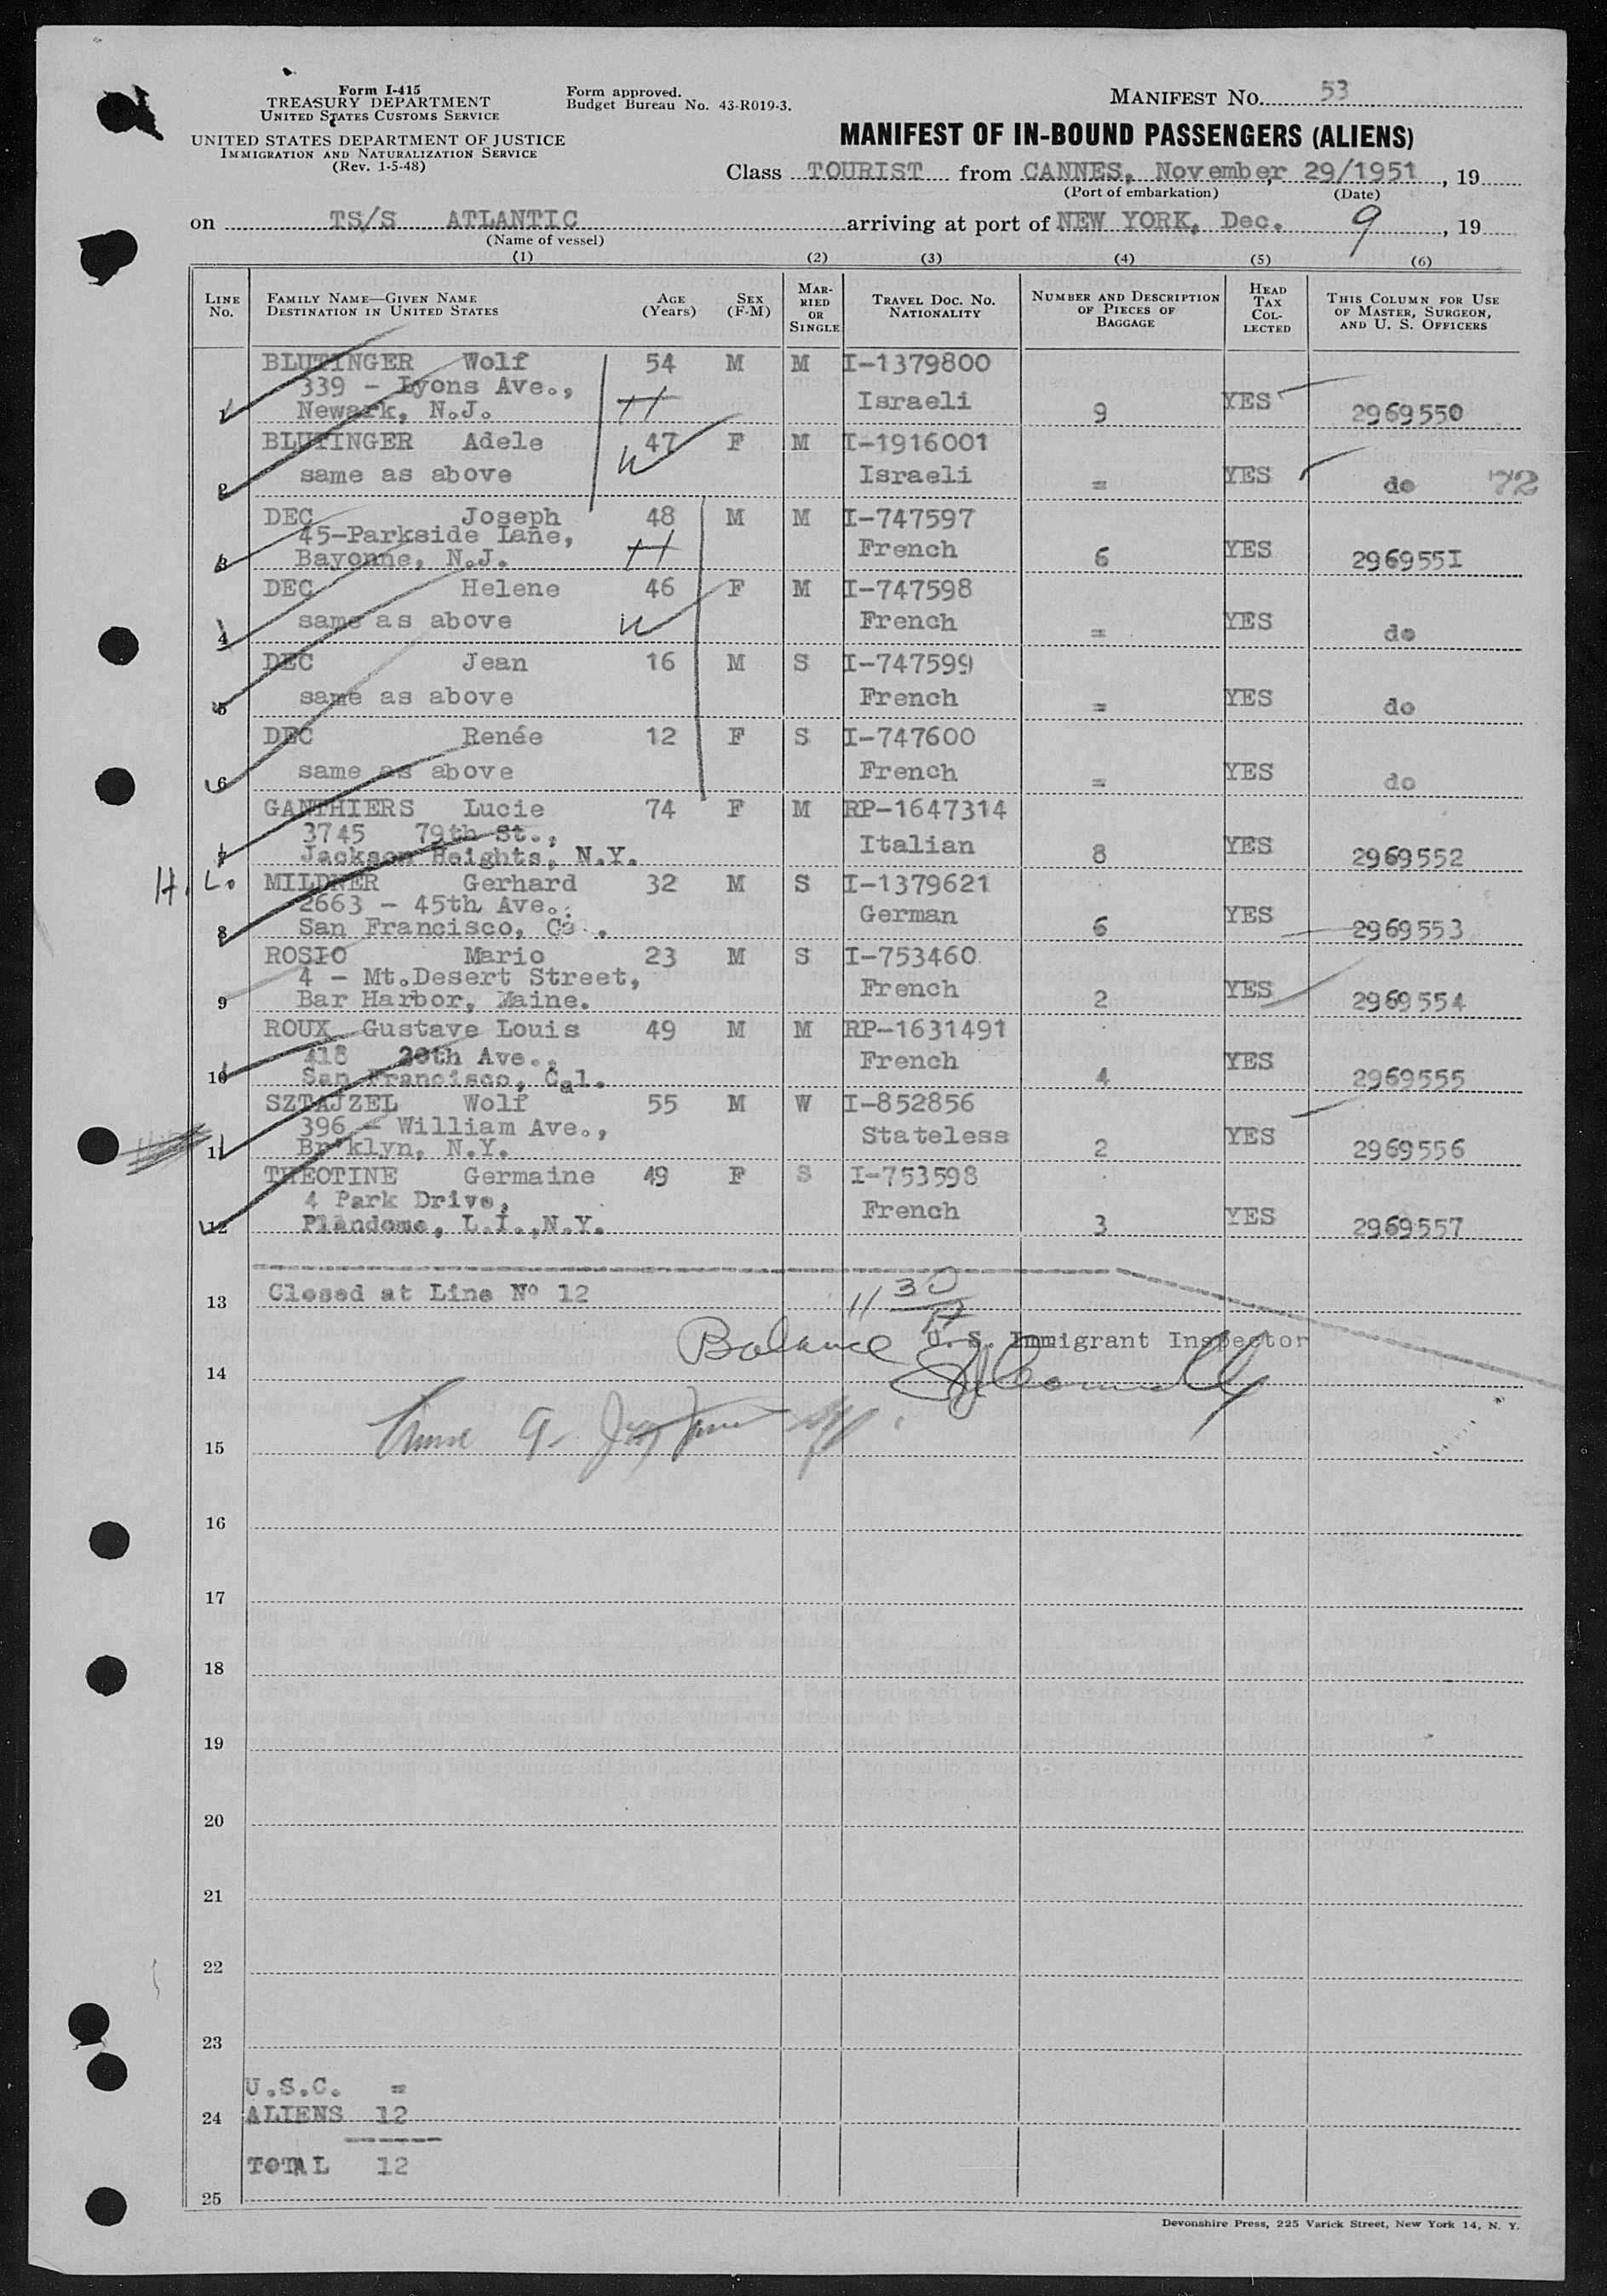 Form I-415
TREASURY DEPARTMENT
UNITED STATES CUSTOMS SERVICE
UNITED STATES DEPARTMENT OF JUSTICE
IMMIGRATION AND NATURALIZATION SERVICE
(Rev. 1-5-48)
Form approved.
Budget Bureau No. 43-R019-3.
MANIFEST NO. 53
MANIFEST OF IN-BOUND PASSENGERS (ALIENS)
Class TOURIST from CANNES, November 29/1951, 19
(Port of embarkation) (Date)
on TS/S ATLANTIC arriving at port of NEW YORK, Dec. 9, 19
(Name of vessel)
(1) (2) (3) (4) (5) (6)
LINE No. FAMILY NAME—GIVEN NAME DESTINATION IN UNITED STATES AGE (Years) SEX (F-M) MAR-RIED OR SINGLE TRAVEL DOC. NO. NATIONALITY NUMBER AND DESCRIPTION OF PIECES OF BAGGAGE HEAD TAX COL-LECTED THIS COLUMN FOR USE OF MASTER, SURGEON, AND U. S. OFFICERS
BLUTINGER Wolf 54 M M I-1379800
339 - Lyons Ave., H Israeli YES
1 Newark, N.J. 9 2969550
BLUTINGER Adele 47 F M I-1916001
same as above W Israeli YES
2 = do 72
DEC Joseph 48 M M I-747597
45-Parkside Lane, H French YES
3 Bayonne, N.J. 6 2969551
DEC Helene 46 F M I-747598
4 same as above W French = YES do
DEC Jean 16 M S I-747599
5 same as above French = YES do
DEC Renée 12 F S I-747600
6 same as above French = YES do
GANTHIERS Lucie 74 F M RP-1647314
3745 79th St., Italian YES
7 Jackson Heights, N.Y. 8 2969552
H. L. MILDNER Gerhard 32 M S I-1379621
2663 - 45th Ave., German YES
8 San Francisco, Ca. 6 2969553
ROSIO Mario 23 M S I-753460
4 - Mt.Desert Street, French YES
9 Bar Harbor, Maine. 2 2969554
ROUX Gustave Louis 49 M M RP-1631491
418 20th Ave., French YES
10 San Francisco, Cal. 4 2969555
SZTAJZEL Wolf 55 M W I-852856
396 - William Ave., Stateless YES
11 Br'klyn, N.Y. 2 2969556
THEOTINE Germaine 49 F S I-753598
4 Park Drive, French YES
12 Plandome, L.I.,N.Y. 3 2969557
13 Closed at Line Nº 12 11 30
Balance U. S. Immigrant Inspector
14
15
16
17
18
19
20
21
22
23
U.S.C. =
24 ALIENS 12
TOTAL 12
25
Devonshire Press, 225 Varick Street, New York 14, N. Y.